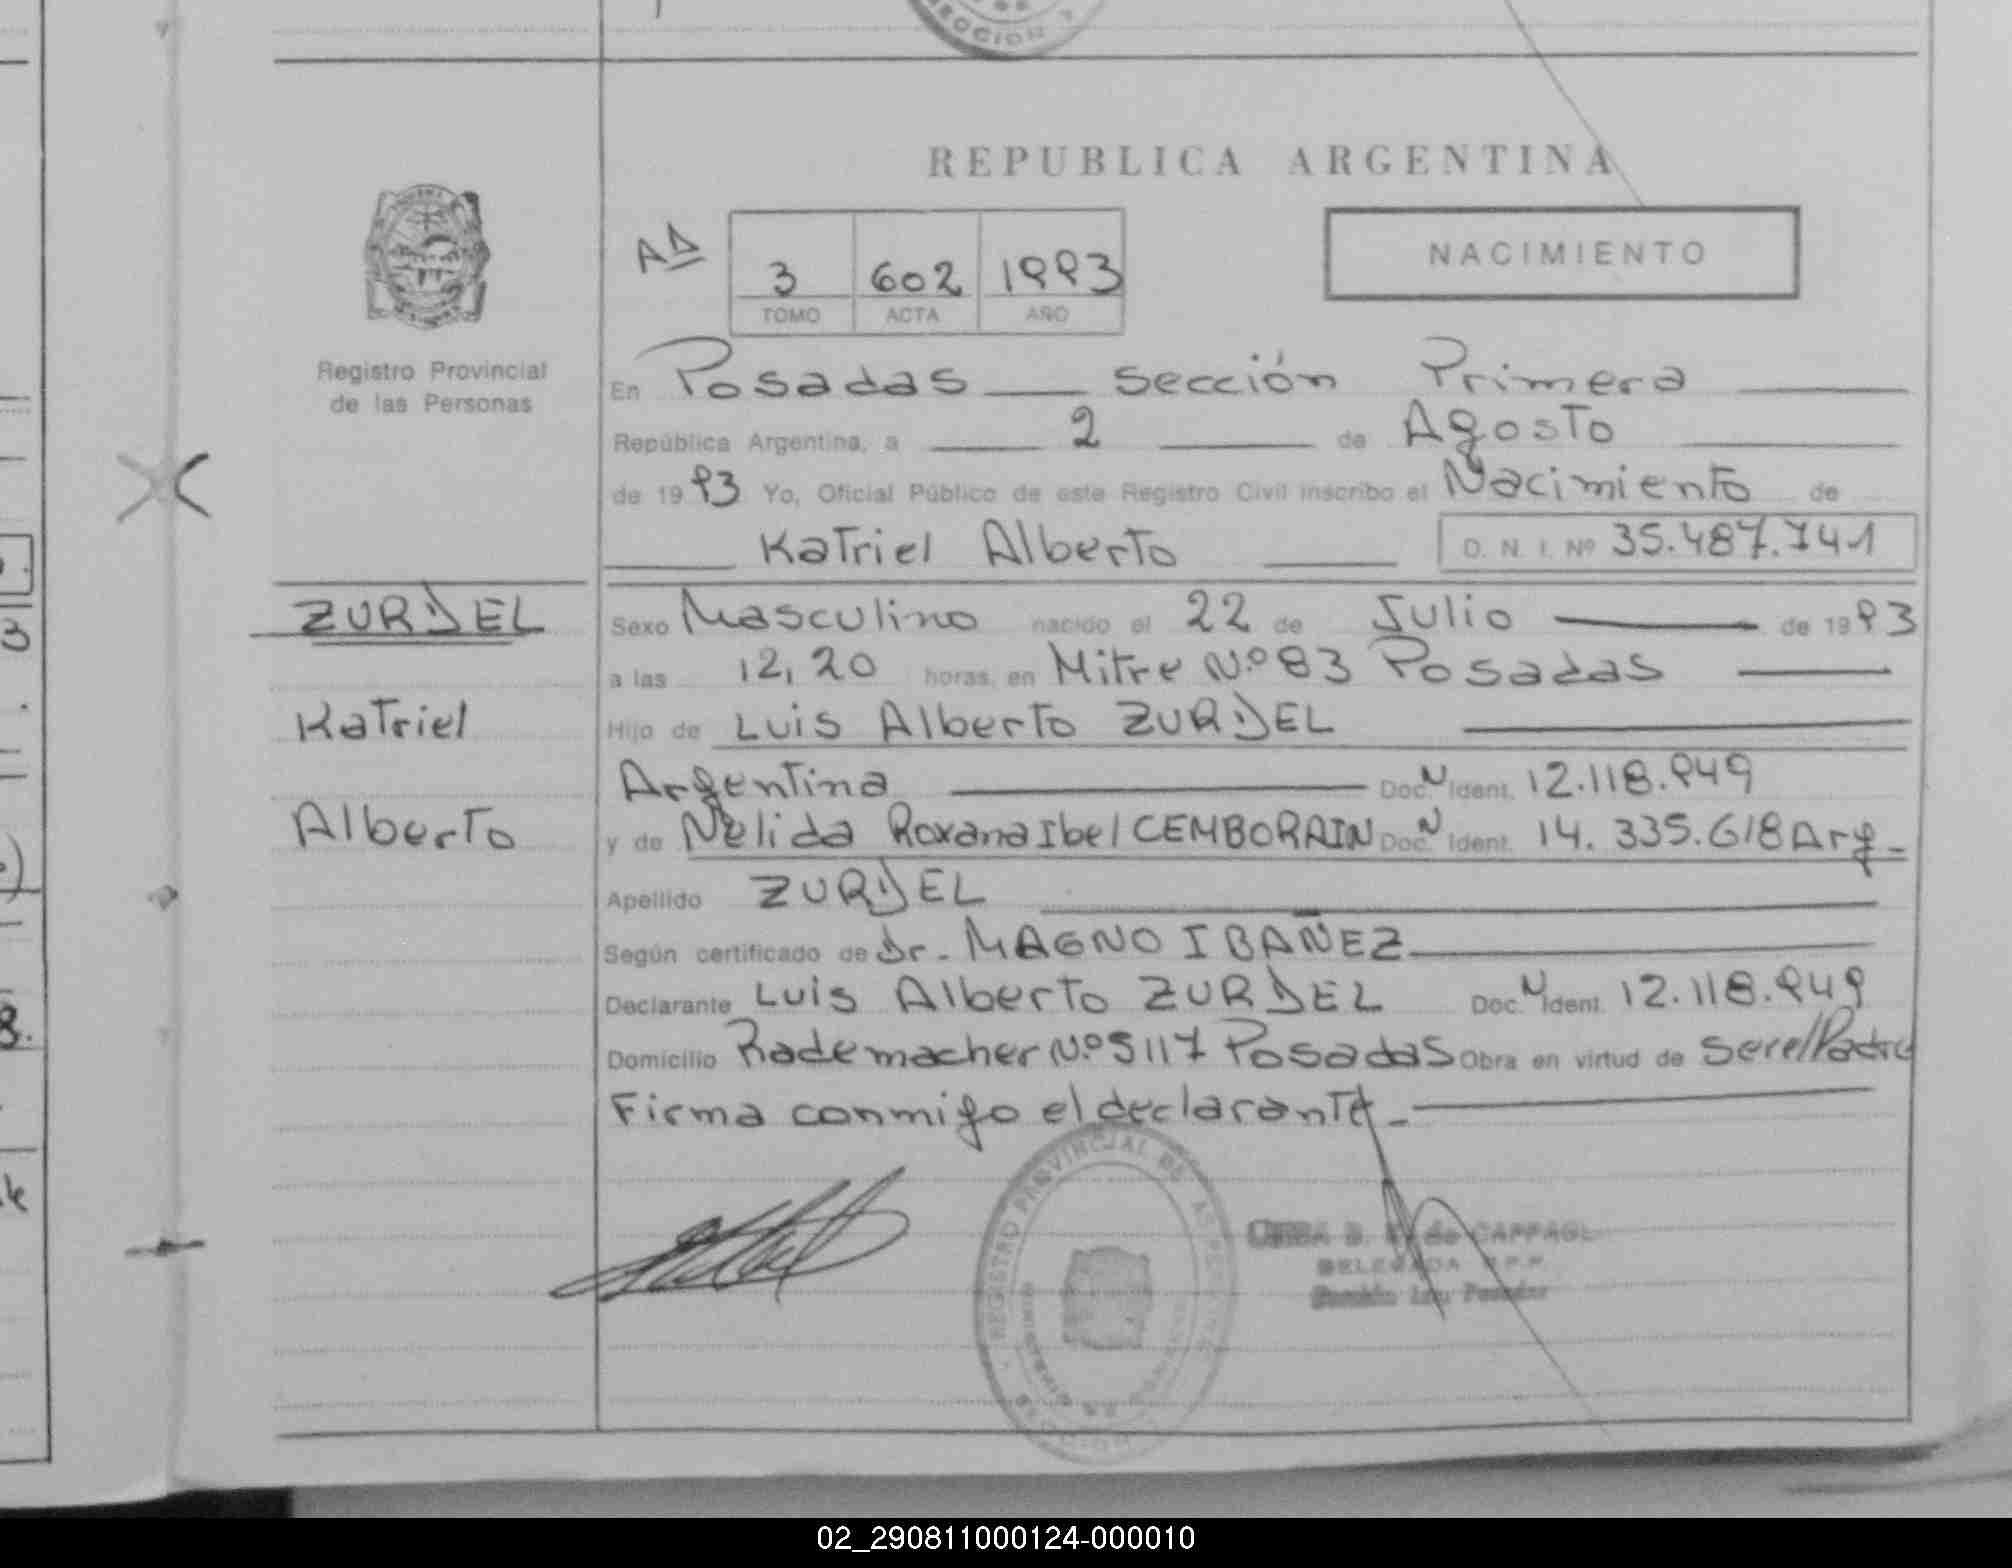 REPUBLICA ARGENTINA
NACIMIENTO
AD
3 602 1993
TOMO ACTA AÑO
Registro Provincial
de las Personas
En Posadas sección Primera
República Argentina, a 2 de Agosto
de 1993 Yo, Oficial Público de este Registro Civil inscribo el Nacimiento de
Katriel Alberto D. N. I. Nº 35.487.741
ZURDEL
Katriel
Alberto
Sexo Masculino nacido el 22 de Julio de 1993
a las 12,20 horas, en Mitre N.º 83 Posadas
Hijo de Luis Alberto ZURDEL
Argentina Doc. N Ident. 12.118.949
y de Nelida Roxana Ibel CEMBORAIN Doc. N Ident. 14.335.618 Arg.
Apellido ZURDEL
Según certificado de Dr. MAGNO IBAÑEZ
Declarante Luis Alberto ZURDEL Doc. N Ident. 12.118.949
Domicilio Rademacher N.º 5117 Posadas Obra en virtud de ser el Padre
Firma conmigo el declarante.
REGISTRO PROVINCIAL DE LAS PERSONAS
MISIONES
de CAPPAGL
DELEGADA R.P.P.
Sección 1ra Posadas
02_290811000124-000010